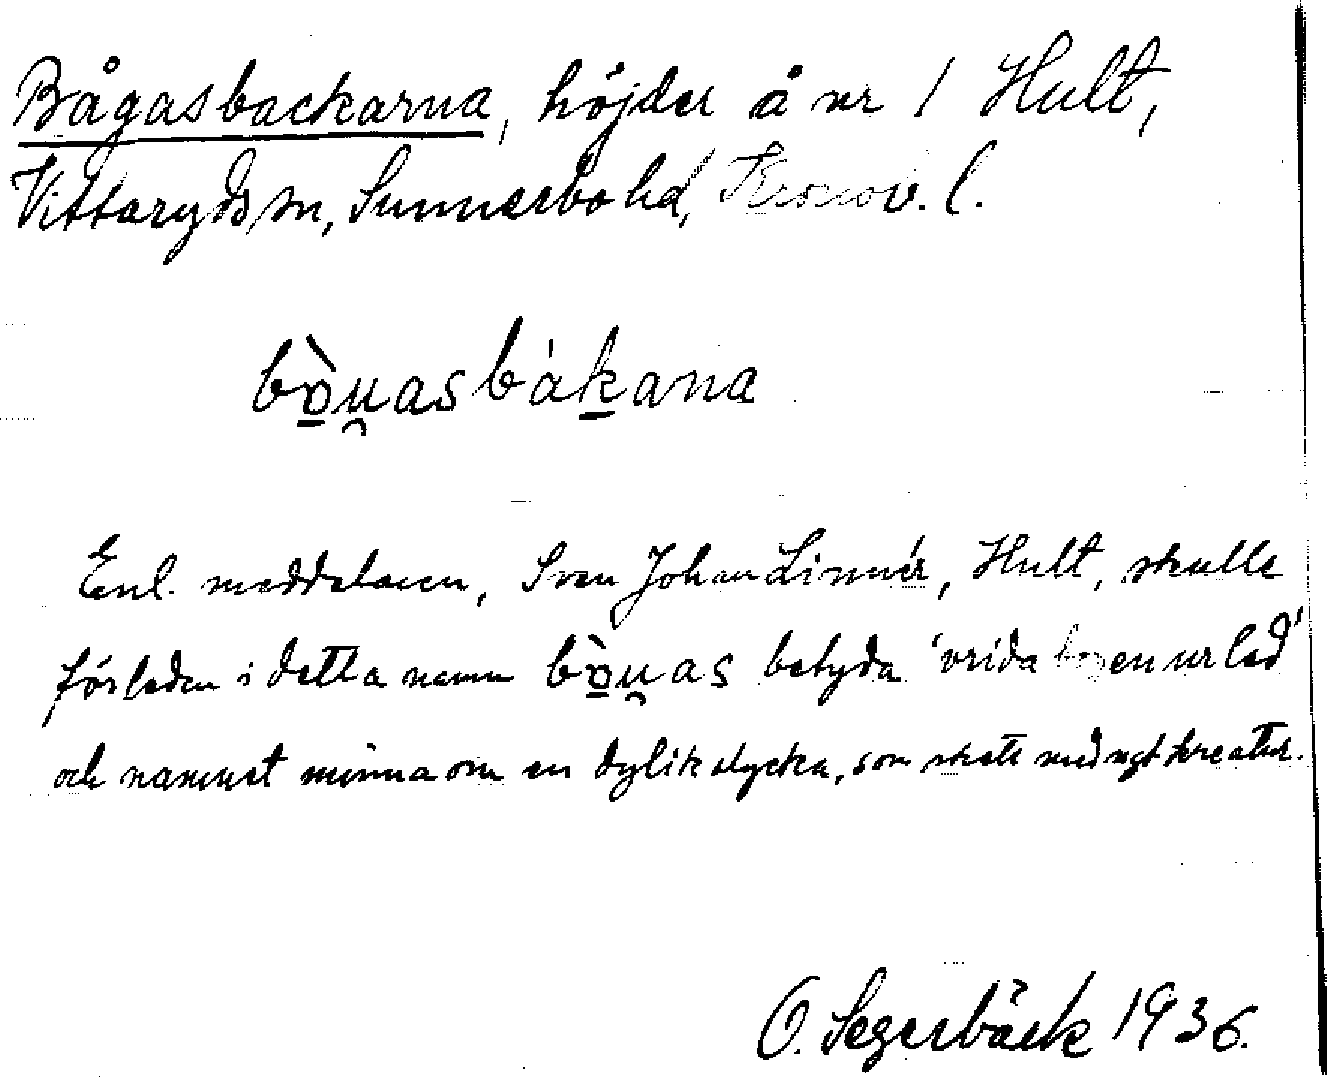 Bågasbackarna, höjder å nr 1 Hult,
Vittaryds sn, Sunnerbo hd, Kronov. l.
bò̱u̯asbák̠ana
Enl. meddelaren, Sven Johan Linnér, Hult, skulle
förleden i detta namn bò̱u̯as betyda 'vrida bogen ur led'
och namnet minna om en dylik olycka, som skett med ngt kreatur.
O. Segerbäck 1936.